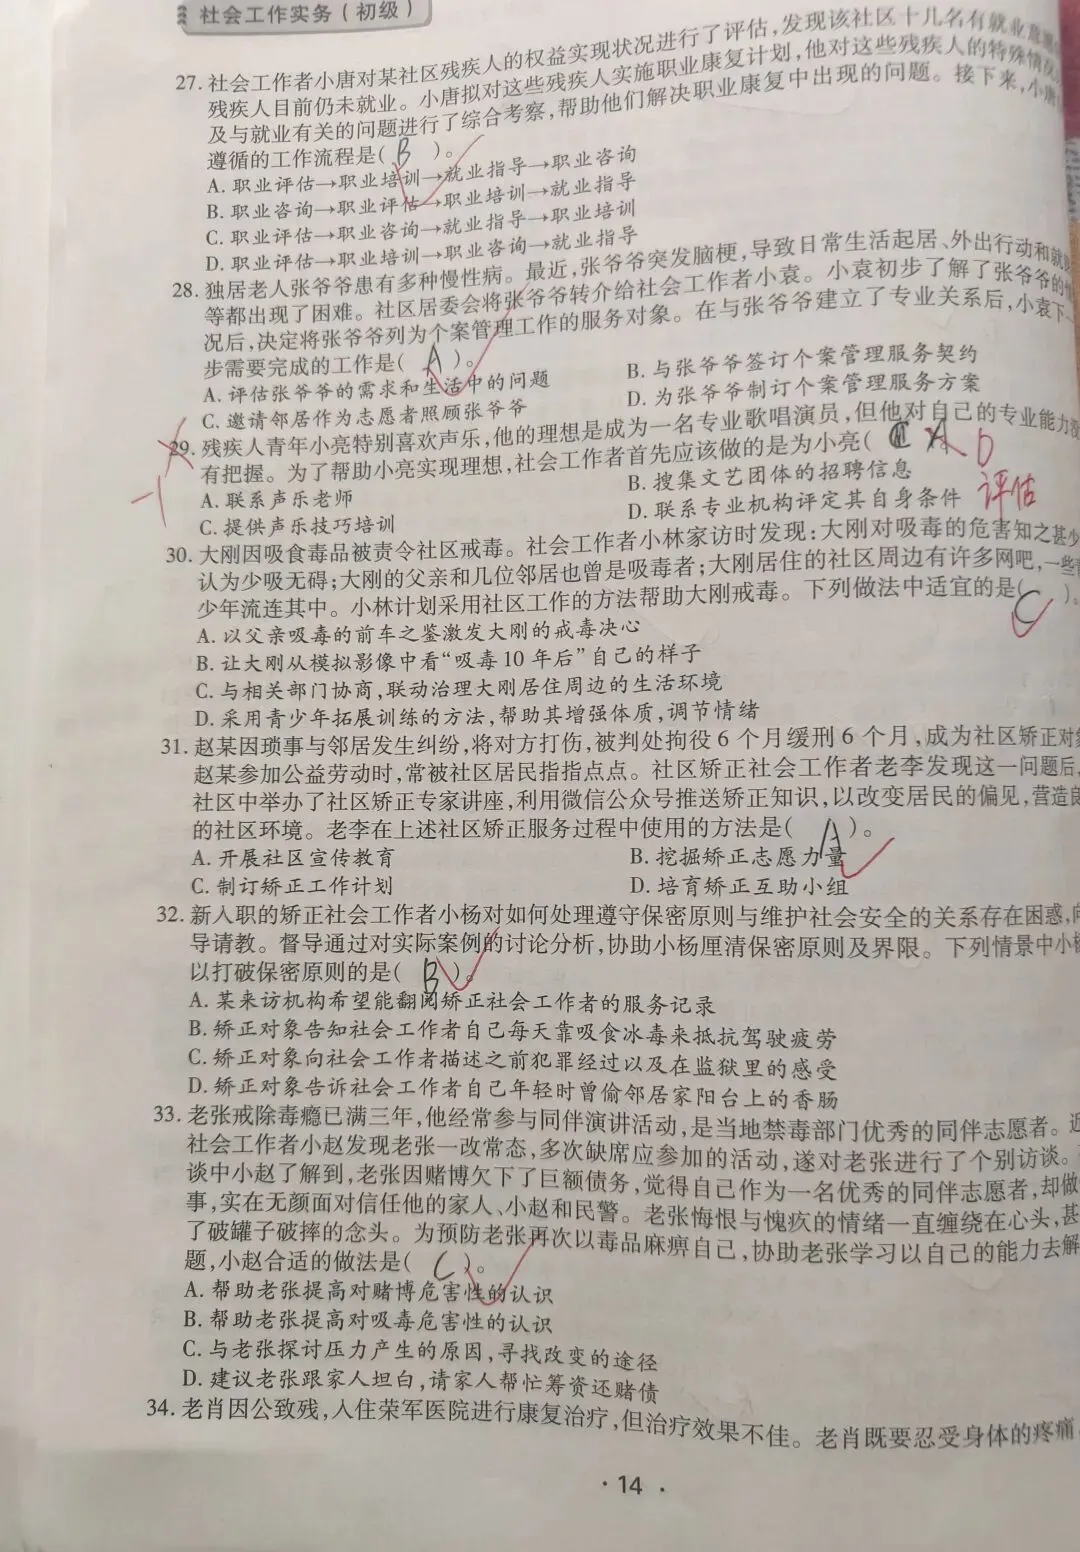 社会工作实务(初级)
27. 社会工作者小唐对某社区残疾人的权益实现状况进行了评估,发现该社区十几名有就业意愿
残疾人目前仍未就业。小唐拟对这些残疾人实施职业康复计划,他对这些残疾人的特殊情况
及与就业有关的问题进行了综合考察,帮助他们解决职业康复中出现的问题。接下来,小唐
遵循的工作流程是( B )。
A. 职业评估→职业培训→就业指导→职业咨询
B. 职业咨询→职业评估→职业培训→就业指导
C. 职业评估→职业咨询→就业指导→职业培训
D. 职业评估→职业培训→职业咨询→就业指导
28. 独居老人张爷爷患有多种慢性病。最近,张爷爷突发脑梗,导致日常生活起居、外出行动和就
等都出现了困难。社区居委会将张爷爷转介给社会工作者小袁。小袁初步了解了张爷爷的
况后,决定将张爷爷列为个案管理工作的服务对象。在与张爷爷建立了专业关系后,小袁下一
步需要完成的工作是( A )。
A. 评估张爷爷的需求和生活中的问题 B. 与张爷爷签订个案管理服务契约
C. 邀请邻居作为志愿者照顾张爷爷 D. 为张爷爷制订个案管理服务方案
29. 残疾人青年小亮特别喜欢声乐,他的理想是成为一名专业歌唱演员,但他对自己的专业能力没
有把握。为了帮助小亮实现理想,社会工作者首先应该做的是为小亮( A D
A. 联系声乐老师 B. 搜集文艺团体的招聘信息
-1 C. 提供声乐技巧培训 D. 联系专业机构评定其自身条件 评估
30. 大刚因吸食毒品被责令社区戒毒。社会工作者小林家访时发现:大刚对吸毒的危害知之甚少
认为少吸无碍;大刚的父亲和几位邻居也曾是吸毒者;大刚居住的社区周边有许多网吧,一些
少年流连其中。小林计划采用社区工作的方法帮助大刚戒毒。下列做法中适宜的是( C )。
A. 以父亲吸毒的前车之鉴激发大刚的戒毒决心
B. 让大刚从模拟影像中看“吸毒10年后”自己的样子
C. 与相关部门协商,联动治理大刚居住周边的生活环境
D. 采用青少年拓展训练的方法,帮助其增强体质,调节情绪
31. 赵某因琐事与邻居发生纠纷,将对方打伤,被判处拘役6个月缓刑6个月,成为社区矫正对象
赵某参加公益劳动时,常被社区居民指指点点。社区矫正社会工作者老李发现这一问题后,
社区中举办了社区矫正专家讲座,利用微信公众号推送矫正知识,以改变居民的偏见,营造良
的社区环境。老李在上述社区矫正服务过程中使用的方法是( A )。
A. 开展社区宣传教育 B. 挖掘矫正志愿力量
C. 制订矫正工作计划 D. 培育矫正互助小组
32. 新入职的矫正社会工作者小杨对如何处理遵守保密原则与维护社会安全的关系存在困惑,向
导请教。督导通过对实际案例的讨论分析,协助小杨厘清保密原则及界限。下列情景中小杨
以打破保密原则的是( B )。
A. 某来访机构希望能翻阅矫正社会工作者的服务记录
B. 矫正对象告知社会工作者自己每天靠吸食冰毒来抵抗驾驶疲劳
C. 矫正对象向社会工作者描述之前犯罪经过以及在监狱里的感受
D. 矫正对象告诉社会工作者自己年轻时曾偷邻居家阳台上的香肠
33. 老张戒除毒瘾已满三年,他经常参与同伴演讲活动,是当地禁毒部门优秀的同伴志愿者。近
社会工作者小赵发现老张一改常态,多次缺席应参加的活动,遂对老张进行了个别访谈。
谈中小赵了解到,老张因赌博欠下了巨额债务,觉得自己作为一名优秀的同伴志愿者,却做
事,实在无颜面对信任他的家人、小赵和民警。老张悔恨与愧疚的情绪一直缠绕在心头,甚
了破罐子破摔的念头。为预防老张再次以毒品麻痹自己,协助老张学习以自己的能力去解
题,小赵合适的做法是( C )。
A. 帮助老张提高对赌博危害性的认识
B. 帮助老张提高对吸毒危害性的认识
C. 与老张探讨压力产生的原因,寻找改变的途径
D. 建议老张跟家人坦白,请家人帮忙筹资还赌债
34. 老肖因公致残,入住荣军医院进行康复治疗,但治疗效果不佳。老肖既要忍受身体的疼痛
· 14 ·